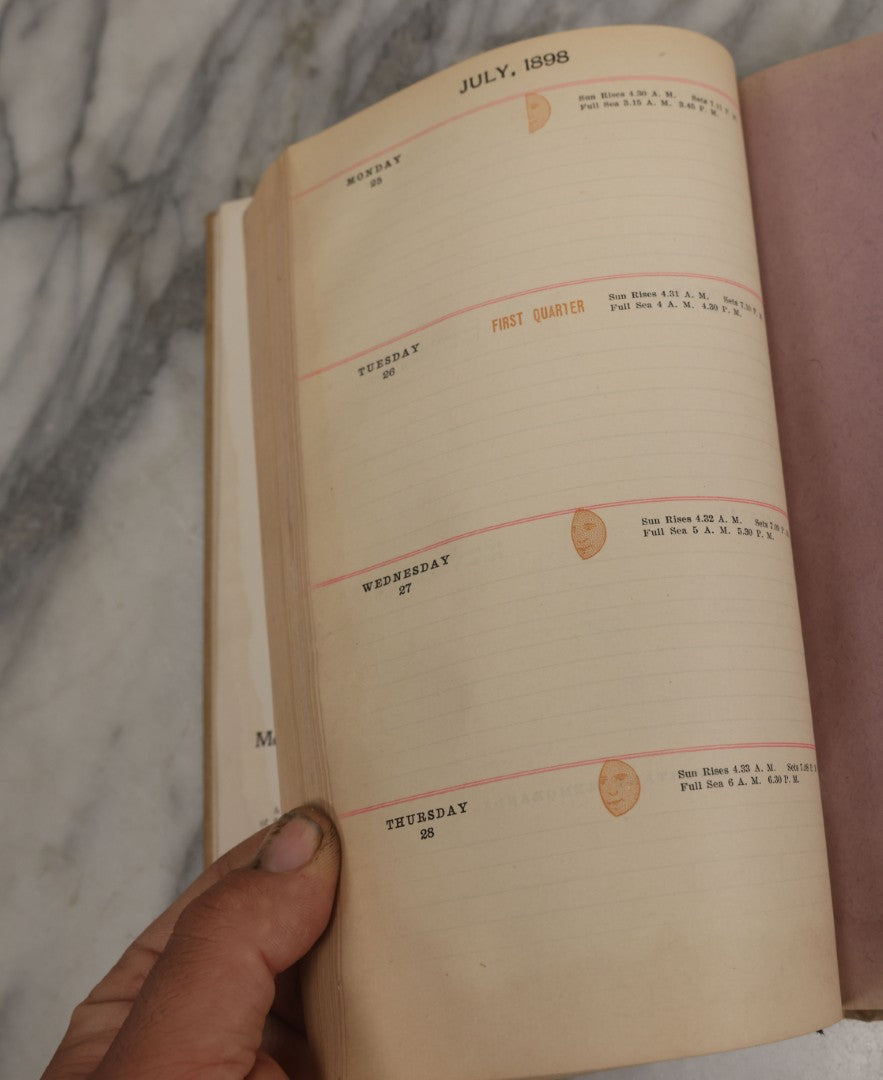 JULY, 1898
Sun Rises 4.30 A. M. Sets 7.11 P. M.
Full Sea 3.15 A. M. 3.45 P. M.
MONDAY
25
FIRST QUARTER
Sun Rises 4.31 A. M. Sets 7.10 P.
Full Sea 4 A. M. 4.30 P. M.
TUESDAY
26
Sun Rises 4.32 A. M. Sets
Full Sea 5 A. M. 5.30 P. M.
WEDNESDAY
27
Sun Rises 4.33 A. M. Sets
Full Sea 6 A. M. 6.30 P. M.
THURSDAY
28